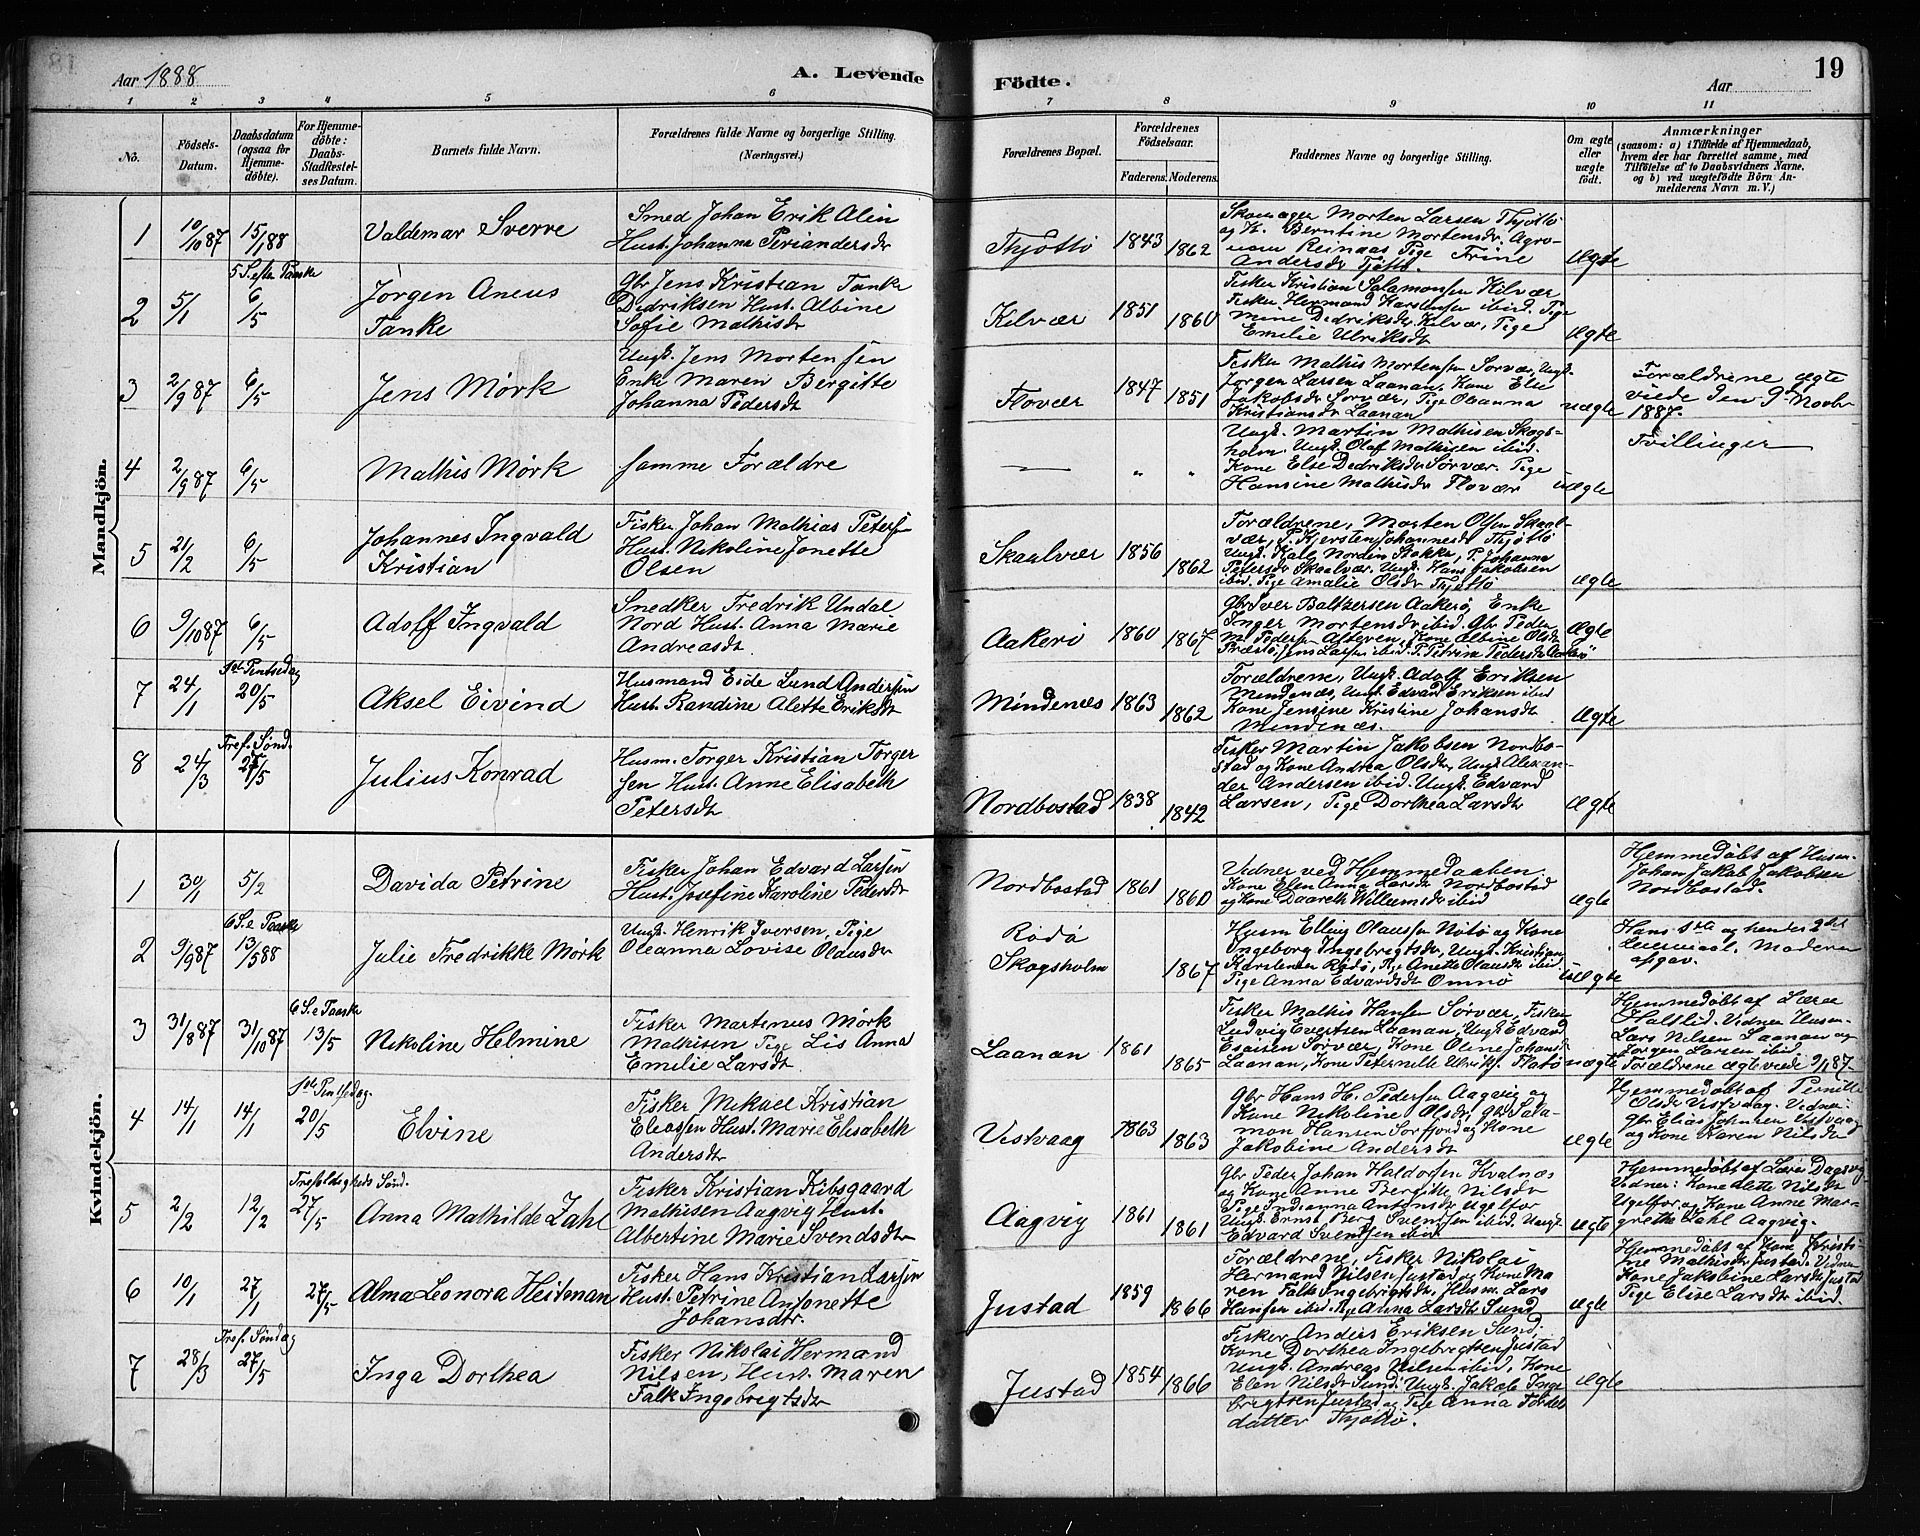 Aar 1888
A. Levende
Födte.
Aar
19
1 2 3 4 5 6 7 8 9 10 11
No.
Födsels-
Datum.
Daabsdatum
(ogsaa for
Hjemme-
döbte).
For Hjemme-
döbte:
Daabs-
Stadfæstel-
ses Datum.
Barnets fulde Navn.
Forældrenes fulde Navne og borgerlige Stilling.
(Næringsvei.)
Forældrenes Bopæl.
Forældrenes
Födselsaar.
Faderens. Moderens.
Faddernes Navne og borgerlige Stilling.
Om ægte
eller
uægte
födt.
Anmærkninger
(saasom: a) i Tilfælde af Hjemmedaab,
hvem der har forrettet samme, med
Tilföielse af to Daabsvidners Navne,
og b) ved uægtefödte Börn An-
melderens Navn m. V.)
Mandkjön.
1
10/10 87
15/1 88
Valdemar Sverre
Smed Johan Erik Alin
Hust. Johanna Periandersdr
Thjøttø
1843
1862
Skomager Morten Larsen Thjøttø
og K. Berntine Mortensdr. Agro-
nom Reinaas Pige Trine
Andersdr Tjøttø.
Ægte
2
5/1
5 S. efter Paaske
6/5
Jørgen Aneus
Tanke
Gbr Jens Kristian Tanke
Dedriksen Hust. Albine
Sofie Mathisdr
Kilvær
1851
1860
Fisker Kristian Salamonsen Kilvær
Fisker Hermand Karstensen ibid. Pige
Mine Dedriksdr Kilvær, Pige
Emilie Ulriksdr
Ægte
3
2/9 87
6/5
Jens Mørk
Ungk. Jens Mortensen
Enke Maren Bergitte
Johanna Pedersdr
Flovær
1847
1851
Fisker Mathis Mortensen Sørvær, Ungk.
Jørgen Larsen Laanan, Kone Else
Jakobsdr Sørvær, Pige Olianna
Kristiansdr Laanan
uægte
Forældrene ægte
viede den 9 Novbr
1887.
4
2/9 87
6/5
Mathis Mørk
samme Forældre
" "
Ungk. Martin Mathisen Skogs-
holm. Ungk. Olaf Mathisen ibid.
Kone Else Dedriksdr Sørvær. Pige
Hansine Mathisdr Flovær
uægte
Tvillinger
5
21/2
6/5
Johannes Ingvald
Kristian
Fisker Johan Mathias Petersen
Hust. Nikoline Jonette
Olsen
Skaalvær
1856
1862
Forældrene, Morten Olsen Skaal-
vær, P. Kjersten Johannesdr Thjøttø
Ungk. Karl Nordin Stokke, P. Johanna
Petersdr Skaalvær. Ungk. Hans Jakobsen
ibid. Pige Amalie Olsdr Thjøttø
Ægte
6
9/10 87
6/5
Adolf Ingvald
Snedker Fredrik Undal
Nord Hust. Anna Marie
Andreasdr
Aakerø
1860
1867
Gbr Iver Baltzersen Aakerø, Enke
Inger Mortensdr ibid. Gbr Peder
M. Pedersen Alteren, Kone Albine Olsdr
Præstø, Jens Larsen ibid. P. Petrine Pedersdr Aakerø
Ægte
7
24/1
1ste Pintsedag
20/5
Aksel Eivind
Husmand Eide Lund Andersen
Hust. Randine Alette Eriksdr
Mindenæs
1863
1862
Forældrene, Ungk. Adolf Eriksen
Mindenæs, Ungk. Edvard Eriksen ibid
Kone Jensine Kristine Johansdr
Mindenæs.
Ægte
8
24/3
Tref. Sønd.
27/5
Julius Konrad
Husm. Torger Kristian Torger
sen Hust. Anne Elisabeth
Petersdr
Nordbostad
1838
1842
Fisker Martin Jakobsen Nordbo-
stad og Kone Andrea Olsdr, Ungk. Alexan-
der Andersen ibid. Ungk. Edvard
Larsen, Pige Dorthea Larsdr
Ægte
Kvindekjön.
1
30/1
5/2
Davida Petrine
Fisker Johan Edvard Larsen
Hust. Josefine Karoline Pedersdr
Nordbostad
1861
1860
Vidner ved Hjemmedaaben.
Kone Elen Anna Larsdr Nordbostad
og Kone Daareth Willumsdr ibid
Ægte
Hjemmedøbt af Husm.
Johan Jakob Jakobsen
Nordbostad.
2
9/9 87
6 S. e Paaske
13/5 88
Julie Fredrikke Mørk
Ungk. Henrik Iversen, Pige
Oleanna Lovise Olausdr
Rødø
Skogsholm
1867
Husm Elling Olaussen Nøtø og Kone
Ingeborg Ingebregtsdr, Ungk. Kristian
Karstensen Rødø, Pige Anette Olausdr ibid
Pige Anna Edvardsdr Omnø
uægte
Hans 1ste og hendes 2det
Leiermaal. Moderen
opgav.
3
31/8 87
31/10 87
6 S. e Paaske
13/5
Nikoline Helmine
Fisker Martenus Mørk
Mathisen Pige Lis Anna
Emilie Larsdr
Laanan
1861
1865
Fisker Mathis Hansen Sørvær, Fisker
Ludvig Evertsen Laanan, Ungk. Edvard
Esaisen Sørvær, Kone Oline Johansd
Laanan, Kone Peternelle Ulriks. Flatø
uægte
Hjemmedøbt af Lærer
Haltlid. Vidner Husm.
Lars Nilsen Laanan og
Jørgen Larsen ibid.
Forældrene ægteviede 9/11 87.
4
14/1
14/1
1ste Pintsedag.
20/5
Elvine
Fisker Mikael Kristian
Eleassen Hust. Marie Elisabeth
Andersdr
Vestvaag
1863
1863
Gbr Hans H. Pedersen Aagvig og
Kone Nikoline Olsdr, Gbr Sala-
mon Hansen Sørfjord og Kone
Jakobine Andersdr
Ægte
Hjemmedøbt af Pernille
Olsdr Vestvaag. Vidner:
Gbr Elias Johnsen Vestvaag
og Kone Karen Nilsdr
5
2/2
12/2
Trefoldigheds Sønd.
27/5
Anna Mathilde Zahl
Fisker Kristian Kibsgaard
Mathisen Aagvig Hust.
Albertine Marie Svendsdr
Aagvig
1861
1861
Gbr Peder Johan Haldorsen Kvalnæs
og Kone Anne Bergitte Nilsdr
Pige Indianna Antonsdr Ugelfor
Ungk. Ernst Berg Svendsen ibid, Ungk.
Edvard Svendsen ibid
Ægte
Hjemmedøbt af Lars Dagsvig
Vidner: Kone Alette Nilsdr
Ugelfor og Kone Anne Mar-
grethe Zahl Aagvig.
6
10/1
27/1
27/5
Alma Leonora Heitman
Fisker Hans Kristian Larsen
Hust. Petrine Antonette
Johansdr.
Justad
1859
1866
Forældrene, Fisker Nikolai
Hermand Nilsen Justad og Kone Ma
ren Falk Ingebrigtsdr, Husm. Lars
Hansen ibid. Pige Anna Larsdr Sund
Ægte
Hjemmedøbt af Kone Kristi-
ne Mathisdr Justad. Vidner
Kone Jakobine Larsdr Justad
Pige Elise Larsdr ibid.
7
28/3
Tref. Søndag
27/5
Inga Dorthea
Fisker Nikolai Hermand
Nilsen, Hust. Maren
Falk Ingebrigtsdr
Justad
1854
1866
Fisker Anders Eriksen Sund,
Kone Dorthea Ingebregtsen Justad
Ungk. Andreas Nilsen ibid, Kone
Elen Nilsdr Sund. Ungk. Jakob Inge
brigtsen Justad og Pige Anna Tordes
datter Thjøttø.
Ægte